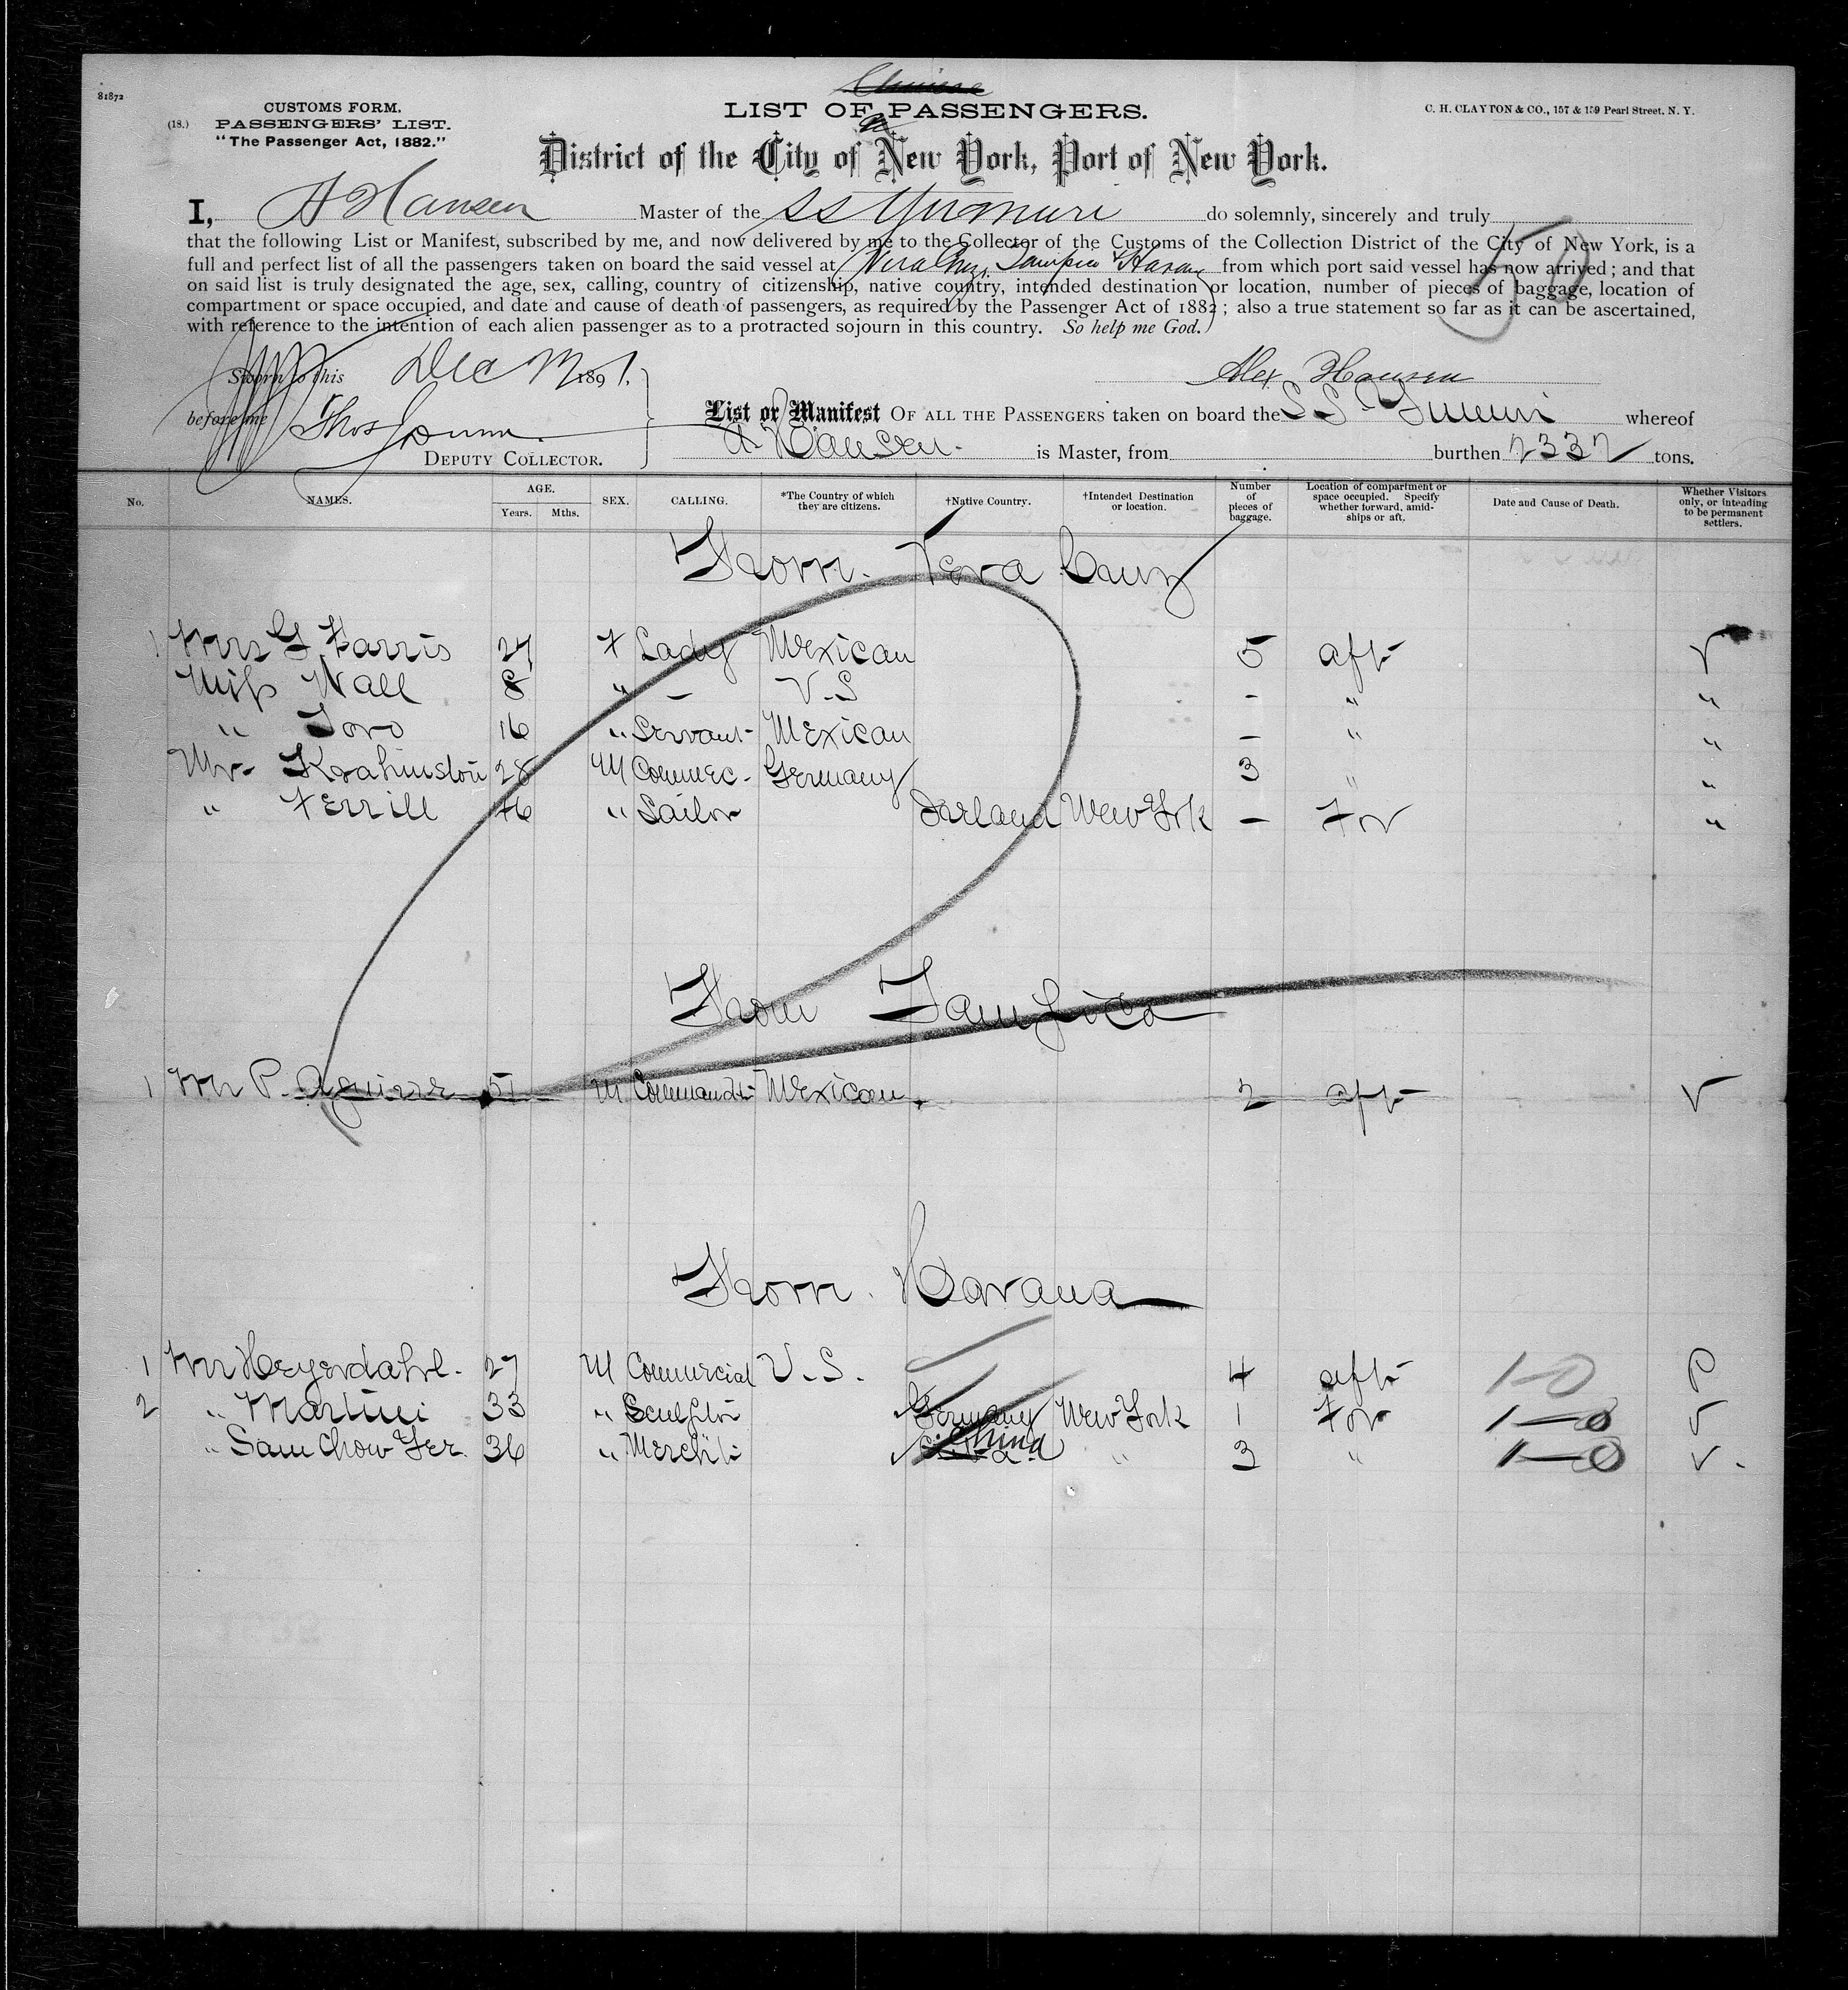 81872
(18.) CUSTOMS FORM.
PASSENGERS' LIST.
"The Passenger Act, 1882."
LIST OF PASSENGERS.
C. H. CLAYTON & CO., 157 & 159 Pearl Street, N. Y.
District of the City of New York, Port of New York.
I, A Hansen Master of the SS Yumuri do solemnly, sincerely and truly
that the following List or Manifest, subscribed by me, and now delivered by me to the Collector of the Customs of the Collection District of the City of New York, is a
full and perfect list of all the passengers taken on board the said vessel at Vera Cruz, Tampico & Havana from which port said vessel has now arrived; and that
on said list is truly designated the age, sex, calling, country of citizenship, native country, intended destination or location, number of pieces of baggage, location of
compartment or space occupied, and date and cause of death of passengers, as required by the Passenger Act of 1882; also a true statement so far as it can be ascertained,
with reference to the intention of each alien passenger as to a protracted sojourn in this country. So help me God.
50
Sworn to this Dec 1891.
Alex Hansen
before me Thos
DEPUTY COLLECTOR.
List or Manifest OF ALL THE PASSENGERS taken on board the S.S. Yumuri whereof
A. Hansen. is Master, from burthen 2332 tons.
No. NAMES. AGE. Years. Mths. SEX. CALLING. *The Country of which they are citizens. †Native Country. †Intended Destination or location. Number of pieces of baggage. Location of compartment or space occupied. Specify whether forward, amidships or aft. Date and Cause of Death. Whether Visitors only, or intending to be permanent settlers.
From Vera Cruz
1 Mrs G Harris 27 F Lady Mexican 5 aft V
Miss Wall 8 " - U.S - " "
" Toro 16 " Servant Mexican - " "
Mr 28 M Commerc. Germany 3 " "
" Ferrill 46 " Sailor New York - For "
From Tampico
1 Mr P. Aguirre 51 M Mexican. 2 aft V
From Havana
1 Mr Heyerdahl. 27 M Commercial U.S. 4 aft 1-0 P
2 " Martini 33 " Sculptor Germany New York 1 For 1-0 V
" Sam Chow Yer. 36 " Mercht China " 3 " 1-0 V.